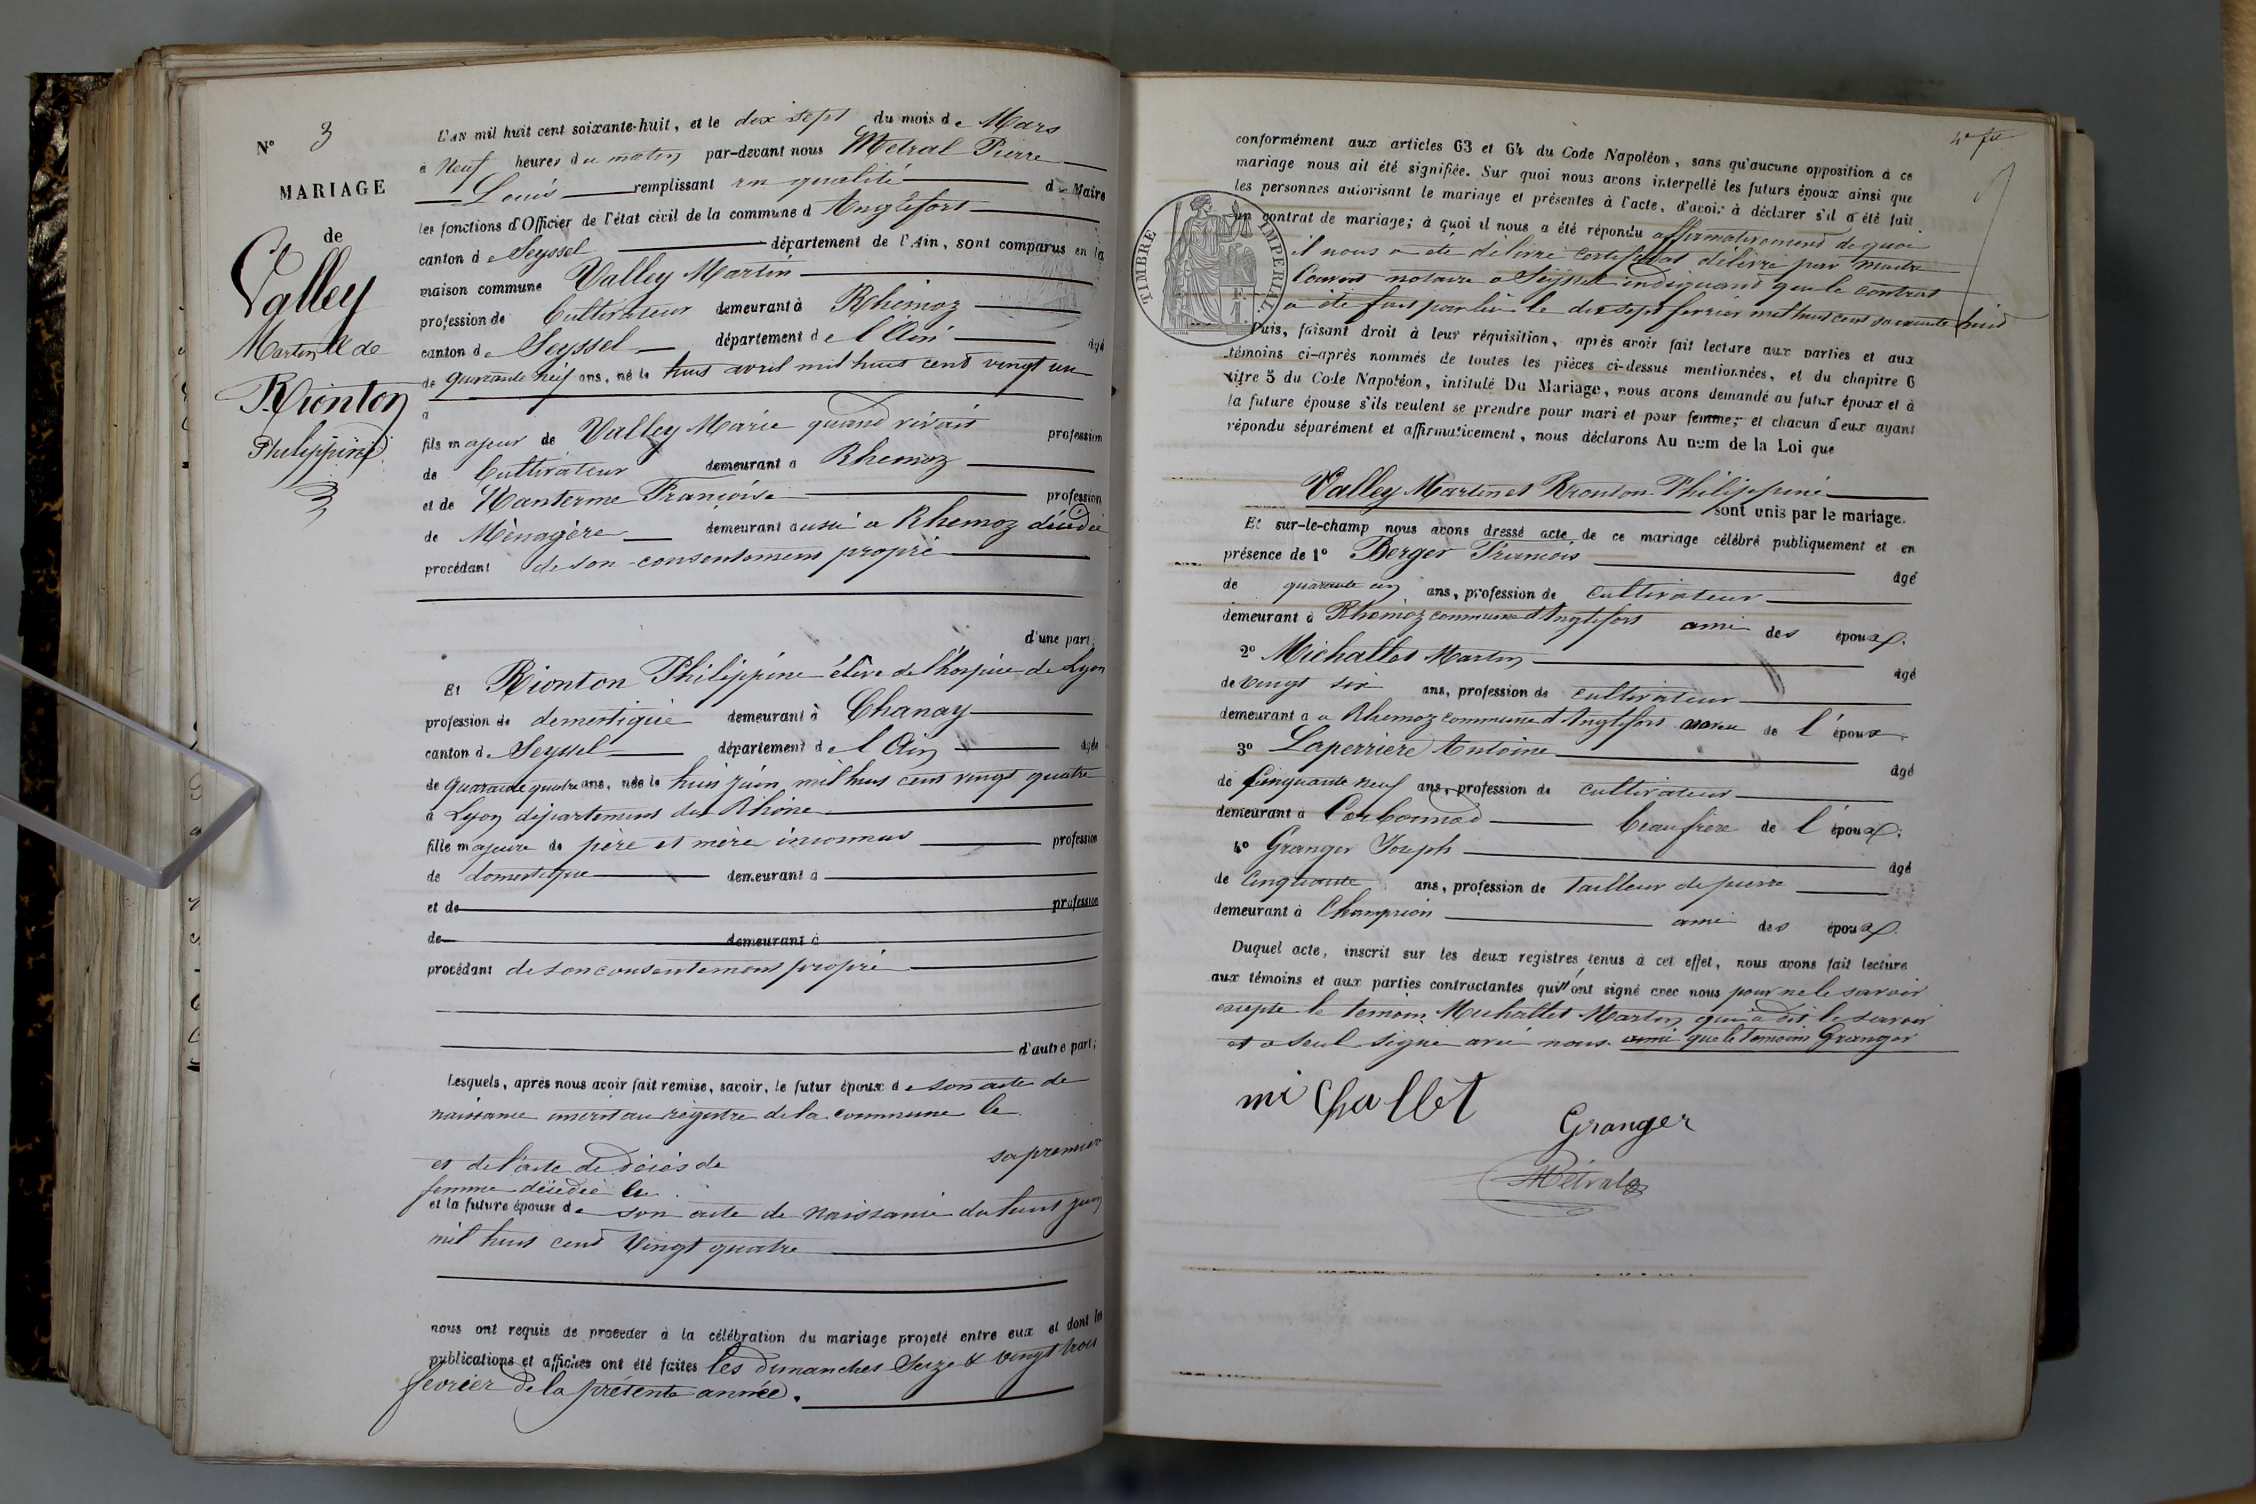 N° 3
MARIAGE
de
Valley
Martin & de
Rionton
Philippine
3
L'AN mil huit cent soixante-huit, et le dix sept du mois de Mars
à Neuf heures du matin par-devant nous Métral Pierre
Louis remplissant en qualité de Maire
les fonctions d'Officier de l'état civil de la commune d Anglefort
canton de Seyssel département de l'Ain, sont comparus en la
maison commune Valley Martin
profession de Cultivateur demeurant à Rhémoz
canton de Seyssel département de l'Ain âgé
de quarante six ans, né le huit avril mil huit cent vingt un
à
fils majeur de Valley Marie quand vivait profession
de Cultivateur demeurant à Rhemoz
et de Nanterme Françoise profession
de Ménagère demeurant aussi à Rhemoz décédée
procédant de son consentement propre
d'une part;
Et Rionton Philippine élève de l'hospice de Lyon
profession de domestique demeurant à Chanay
canton de Seyssel département de l'Ain âgée
de quarante quatre ans, née le huit juin mil huit cent vingt quatre
à Lyon département du Rhône
fille majeure de père et mère inconnus profession
de domestique demeurant à
et de profession
de demeurant à
procédant de son consentement propre
d'autre part;
Lesquels, après nous avoir fait remise, savoir, le futur époux de son acte de
naissance inscrit au régistre de la commune le
et de l'acte de décès de sa première
femme décédée le
et la future épouse de son acte de naissance du huit juin
mil huit cent vingt quatre
nous ont requis de procéder à la célébration du mariage projeté entre eux et dont les
publications et affiches ont été faites les dimanches Seize & vingt trois
février de la présente année.
conformément aux articles 63 et 64 du Code Napoléon, sans qu'aucune opposition à ce
mariage nous ait été signifiée. Sur quoi nous avons interpellé les futurs époux ainsi que
les personnes autorisant le mariage et présentes à l'acte, d'avoir à déclarer s'il a été fait
un contrat de mariage; à quoi il nous a été répondu affirmativement de quoi
il nous a été délivré certificat délivré par maitre
notaire à Seyssel indiquant que le contrat
a été fait par lui le dix sept février mil huit cent soixante huit
TIMBRE IMPERIAL
Puis, faisant droit à leur réquisition, après avoir fait lecture aux parties et aux
témoins ci-après nommés de toutes les pièces ci-dessus mentionnées, et du chapitre 6
titre 5 du Code Napoléon, intitulé Du Mariage, nous avons demandé au futur époux et à
la future épouse s'ils veulent se prendre pour mari et pour femme; et chacun d'eux ayant
répondu séparément et affirmativement, nous déclarons Au nom de la Loi que
Valley Martin et Rionton Philippine
sont unis par le mariage.
Et sur-le-champ nous avons dressé acte de ce mariage célébré publiquement et en
présence de 1° Berger François âgé
de quarante cinq ans, profession de cultivateur
demeurant à Rhemoz commune d'Anglefort ami des époux.
2° Michallet Martin âgé
de vingt six ans, profession de cultivateur
demeurant à à Rhemoz commune d'Anglefort neveu de l'époux.
3° Laperriere Antoine âgé
de Cinquante neuf ans, profession de cultivateur
demeurant à Corbonod beaufrère de l'époux.
4° Granger Joseph âgé
de Cinquante ans, profession de tailleur de pierre
demeurant à Champrion ami des époux.
Duquel acte, inscrit sur les deux registres tenus à cet effet, nous avons fait lecture
aux témoins et aux parties contractantes qui n'ont signé avec nous pour ne le savoir
excepté le témoin Michallet Martin qui a dit le savoir
et a seul signé avec nous ainsi que le temoin Granger
mi challet
Granger
Métral